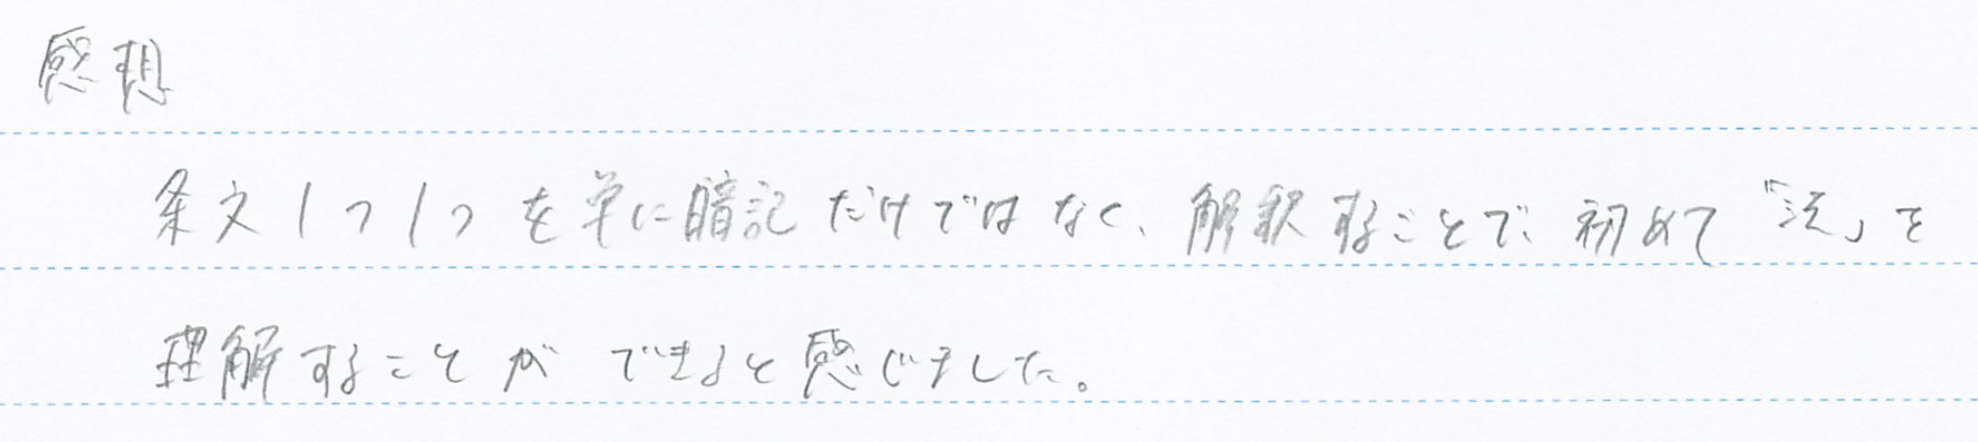 感想
条文1つ1つを単に暗記だけではなく、解釈することで、初めて「法」を
理解することができると感じました。